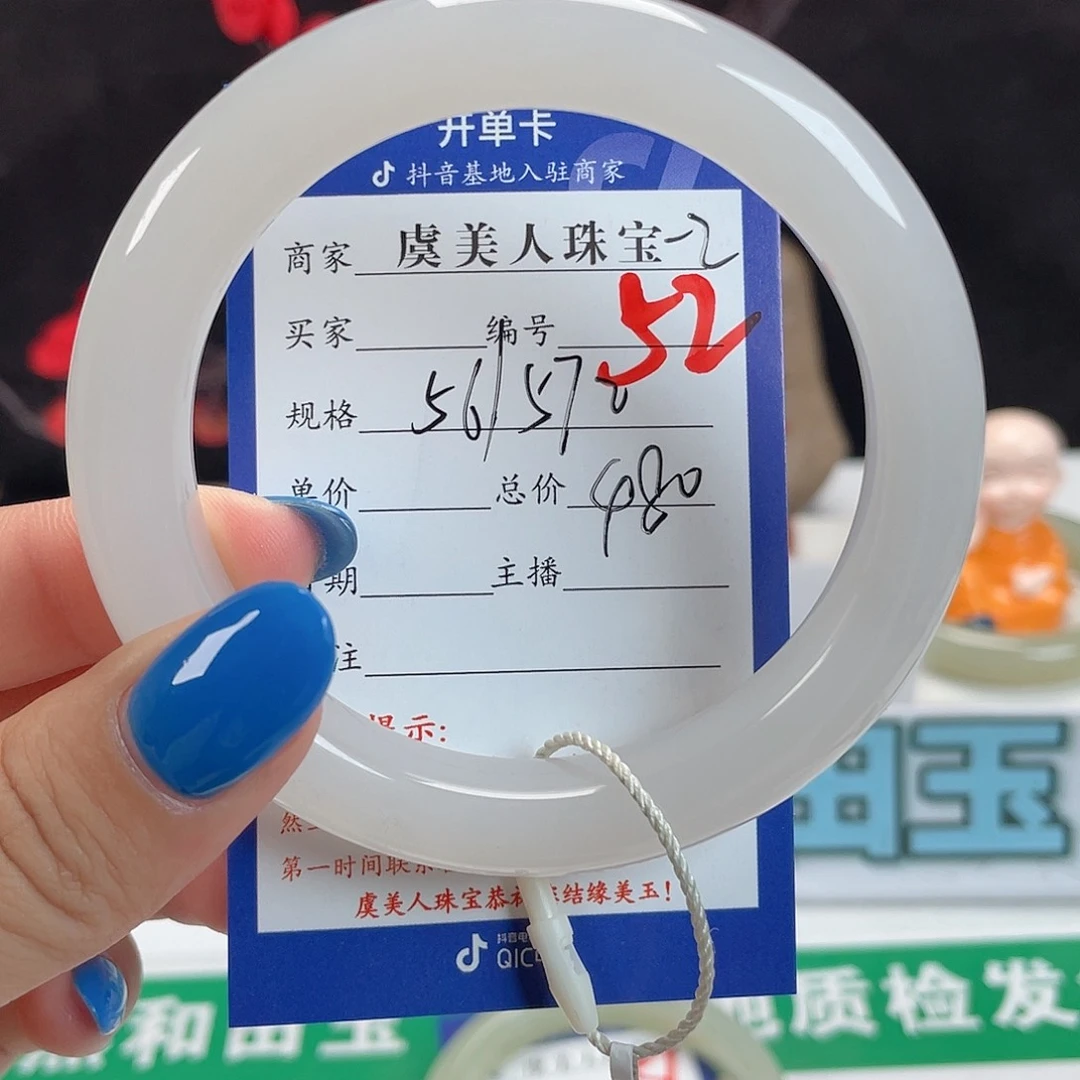 开单卡
抖音基地入驻商家
商家 虞美人珠宝-2
买家 编号 52
规格 56/57
单价 总价 480
期 主播
注
提示:
第一时间联系
虞美人珠宝恭祝 结缘美玉!
抖音电
QIC
田玉
和田玉
地质检发